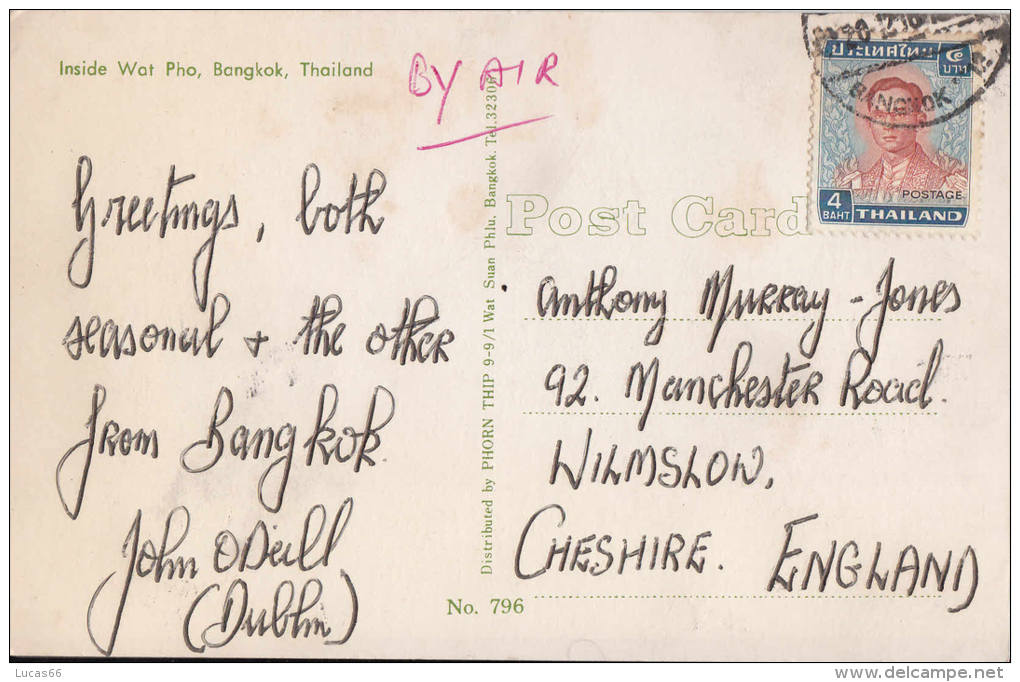 Inside Wat Pho, Bangkok, Thailand
BY AIR
Greetings, both
seasonal + the other
from Bangkok.
John O'Neill
(Dublin)
Distributed by PHORN THIP 9-9/1 Wat Suan Phlu, Bangkok. Tel.32306
No. 796
Post Card
ประเทศไทย ๔
บาท
BANGKOK
POSTAGE
4
BAHT THAILAND
Anthony Murray-Jones
92. Manchester Road.
WILMSLOW,
CHESHIRE. ENGLAND
Lucas66
delcampe.net